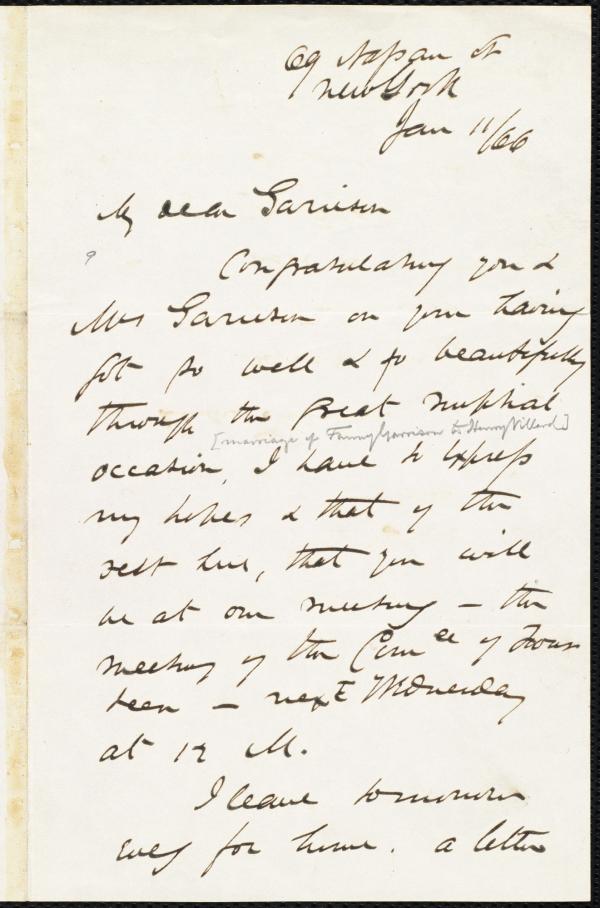 69 Nassau St
New York
Jan 11/66
My dear Garrison
Congratulating you &
Mrs Garrison on your having
got so well & so beautifully
through the great nuptial
[marriage of Fanny Garrison to Henry Villard]
occasion, I have to express
my hopes & that of the
rest here, that you will
be at our meeting – the
meeting of the Com ee of Four
teen – next Wednesday
at 12 M.
I leave tomorrow
eveg for home. A letter